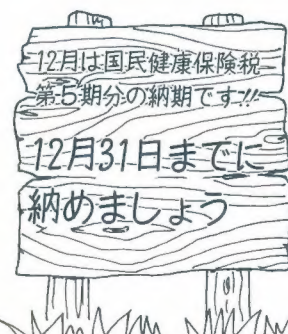 12月は国民健康保険税
第5期分の納期です!!
12月31日までに
納めましょう